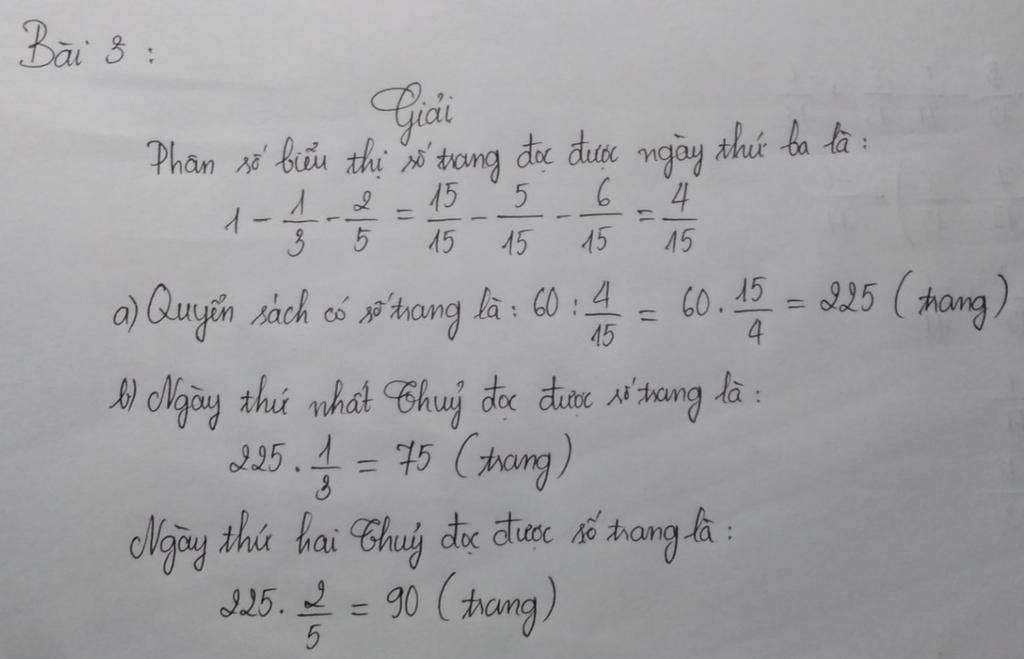 Bài 3 :
Giải
Phân số biểu thị số trang đọc được ngày thứ ba là :
1 - 1/3 - 2/5 = 15/15 - 5/15 - 6/15 = 4/15
a) Quyển sách có số trang là : 60 : 4/15 = 60 . 15/4 = 225 (trang)
b) Ngày thứ nhất Thuỷ đọc được số trang là :
225 . 1/3 = 75 (trang)
Ngày thứ hai Thuỷ đọc được số trang là :
225 . 2/5 = 90 (trang)